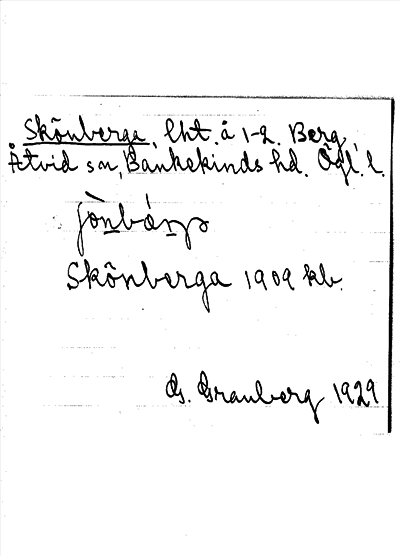 Skönberga, lht. å 1-2. Berg,
Åtvid sn, Bankekinds hd. Ögl. l.
Skönberga 1909 kb.
G. Granberg 1929